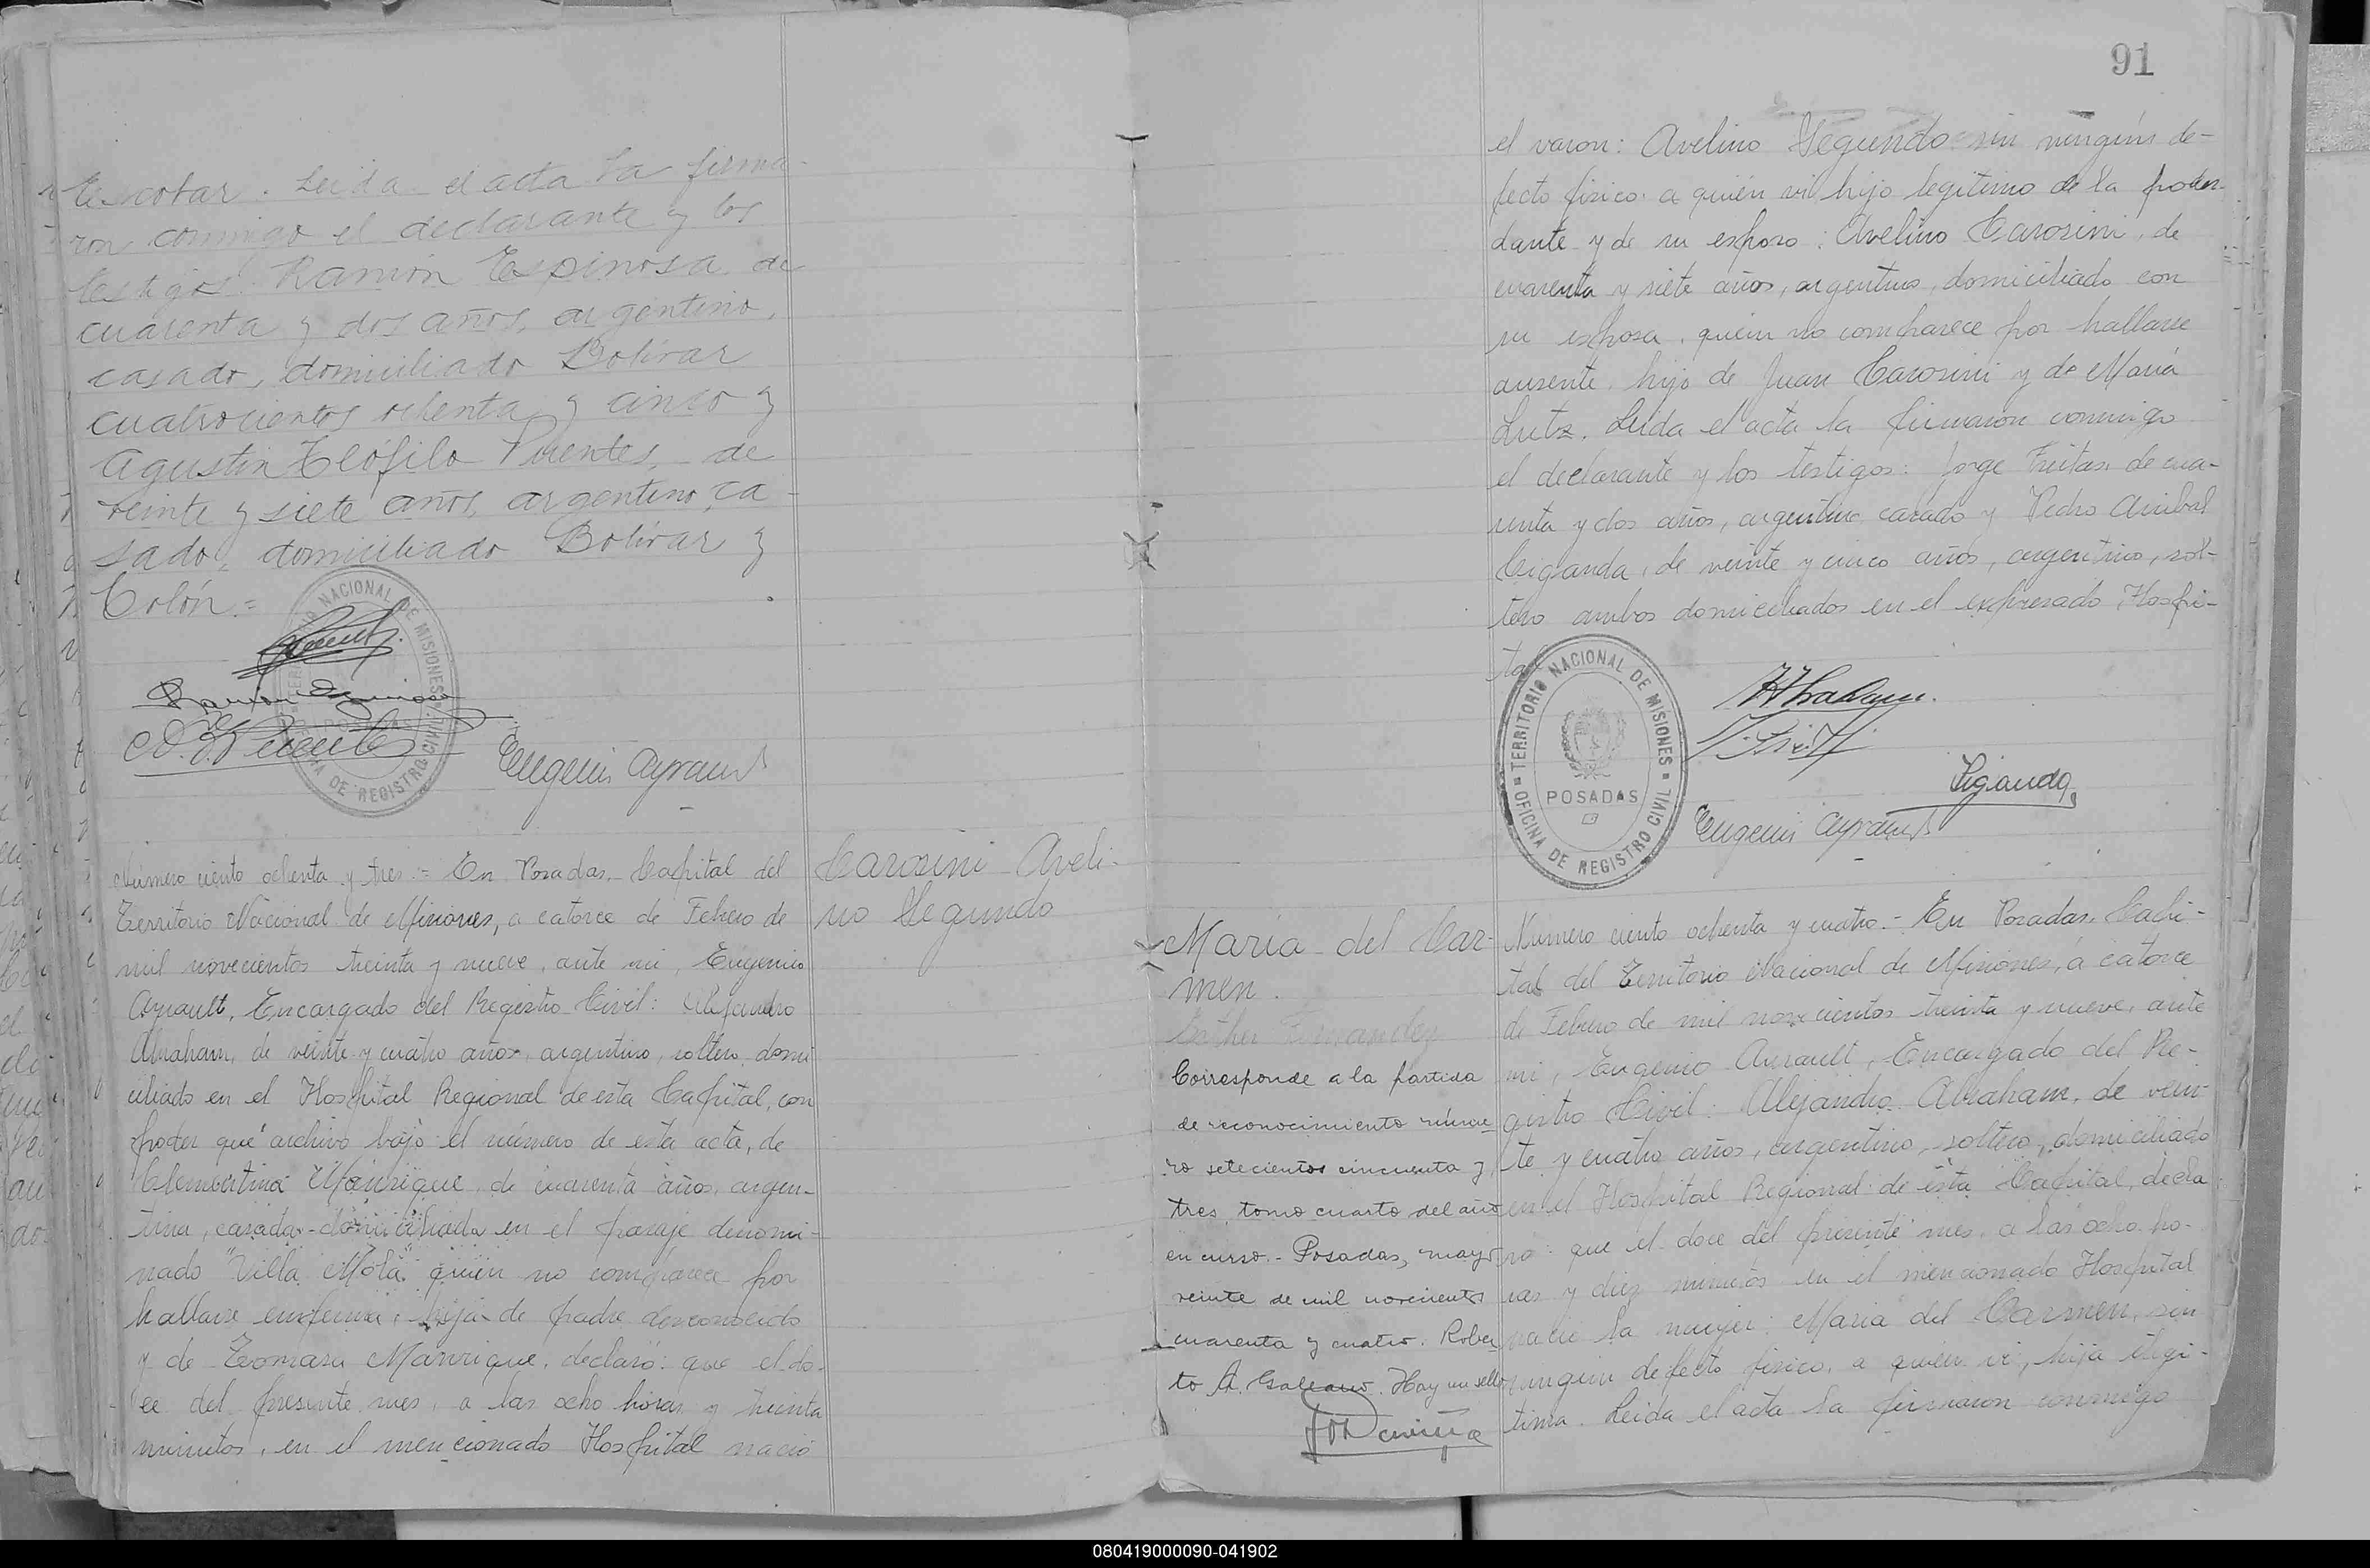 Escobar. Leída el acta la firma-
ron conmigo el declarante y los
testigos: Ramón Espinosa, de
cuarenta y dos años, argentino,
casado, domiciliado Bolívar
cuatrocientos ochenta y cinco y
Agustín Teófilo Puentes, de
veinte y siete años, argentino, ca-
sado, domiciliado Bolívar y
Colón.=
TERRITORIO NACIONAL DE MISIONES
POSADAS
OFICINA DE REGISTRO CIVIL
Ramón Espinosa
Eugenio Ayrault
Carosini Aveli-
no Segundo
Número ciento ochenta y tres.= En Posadas, Capital del
Territorio Nacional de Misiones, a catorce de Febrero de
mil novecientos treinta y nueve, ante mi, Eugenio
Ayrault, Encargado del Registro Civil: Alejandro
Abraham, de veinte y cuatro años, argentino, soltero, domi
ciliado en el Hospital Regional de esta Capital, con
poder que archivo bajo el número de esta acta, de
Clementina Manrique, de cuarenta años, argen-
tina, casada, domiciliada en el paraje denomi-
nado "Villa Mota" quién no comparece por
hallarse enferma, hija de padre desconocido
y de Manrique, declaró: que el do-
ce del presente mes, a las ocho horas y treinta
minutos, en el mencionado Hospital nació
91
el varon: Avelino Segundo sin ningún de-
fecto físico a quién vi, hijo legitimo de la poder-
dante y de su esposo: Avelino Carosini, de
cuarenta y siete años, argentino, domiciliado con
su esposa, quién no comparece por hallarse
ausente, hijo de Juan Carosini y de María
Lutz. Leida el acta la firmaron conmigo
el declarante y los testigos: Jorge Freitas, de cua-
renta y dos años, argentino, casado y Pedro Anibal
Ciganda, de veinte y cinco años, argentino, sol-
tero ambos domiciliados en el expresado Hospi-
tal
TERRITORIO NACIONAL DE MISIONES
POSADAS
OFICINA DE REGISTRO CIVIL
Eugenio Ayrault
María del Car-
men.
Esther Fernandez
Corresponde a la partida
de reconocimiento núme-
ro setecientos cincuenta y
tres, tomo cuarto del año
en curso.- Posadas, mayo
veinte de mil novecientos
cuarenta y cuatro. Rober
to A. Galeano. Hay un sello
Número ciento ochenta y cuatro.- En Posadas, Capi-
tal del Territorio Nacional de Misiones, á catorce
de Febrero de mil novecientos treinta y nueve, ante
mi, Eugenio Ayrault, Encargado del Re-
gistro Civil: Alejandro Abraham, de vein-
te y cuatro años, argentino, soltero, domiciliado
en el Hospital Regional de esta Capital, decla
ró: que el doce del presente mes, a las ocho ho-
ras y diez minutos en el mencionado Hospital
nació la mujer: María del Carmen, sin
ningún defecto físico, a quién vi, hija ilegi-
tima. Leida el acta la firmaron conmigo
080419000090-041902